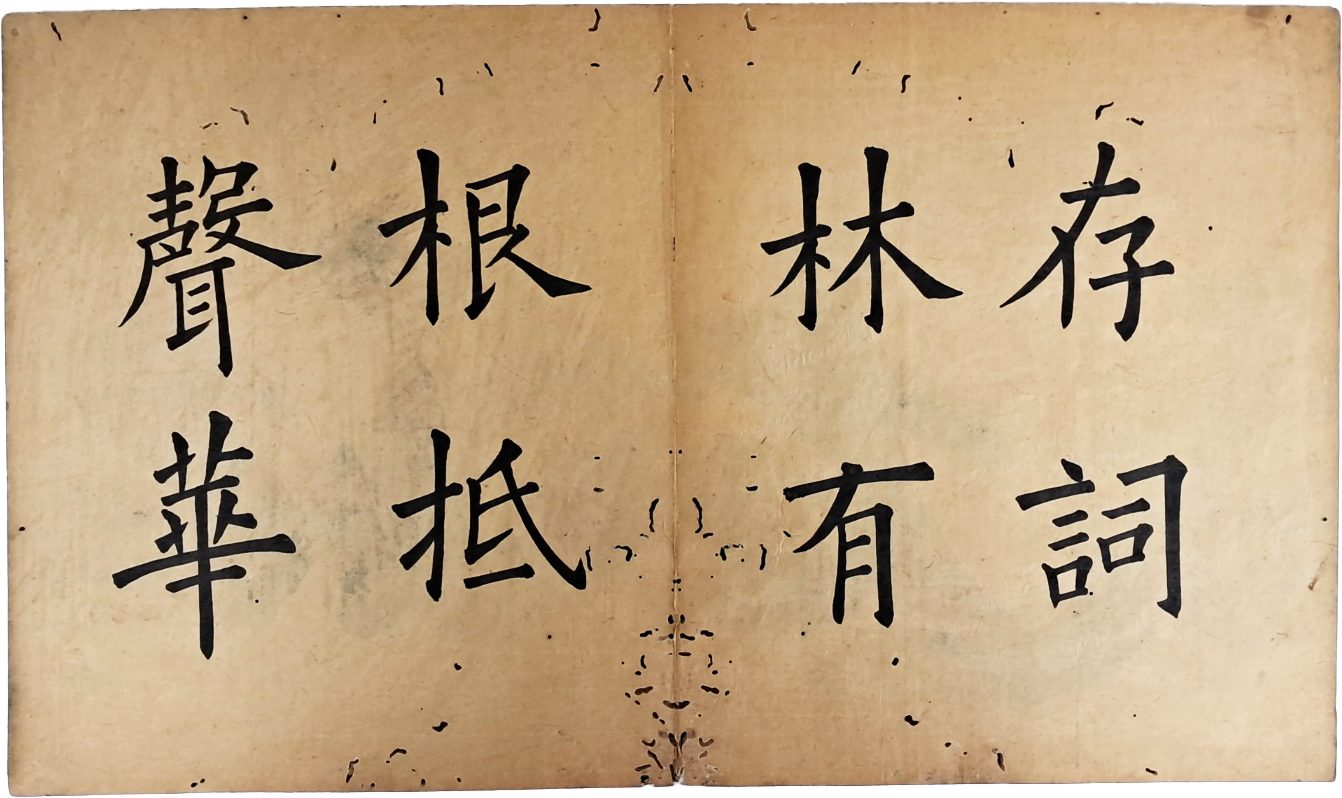 存詞
林有
根抵
聲華